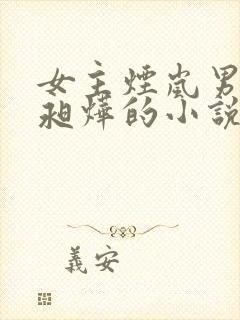 女主煙嵐男
昶燁的小說
義安